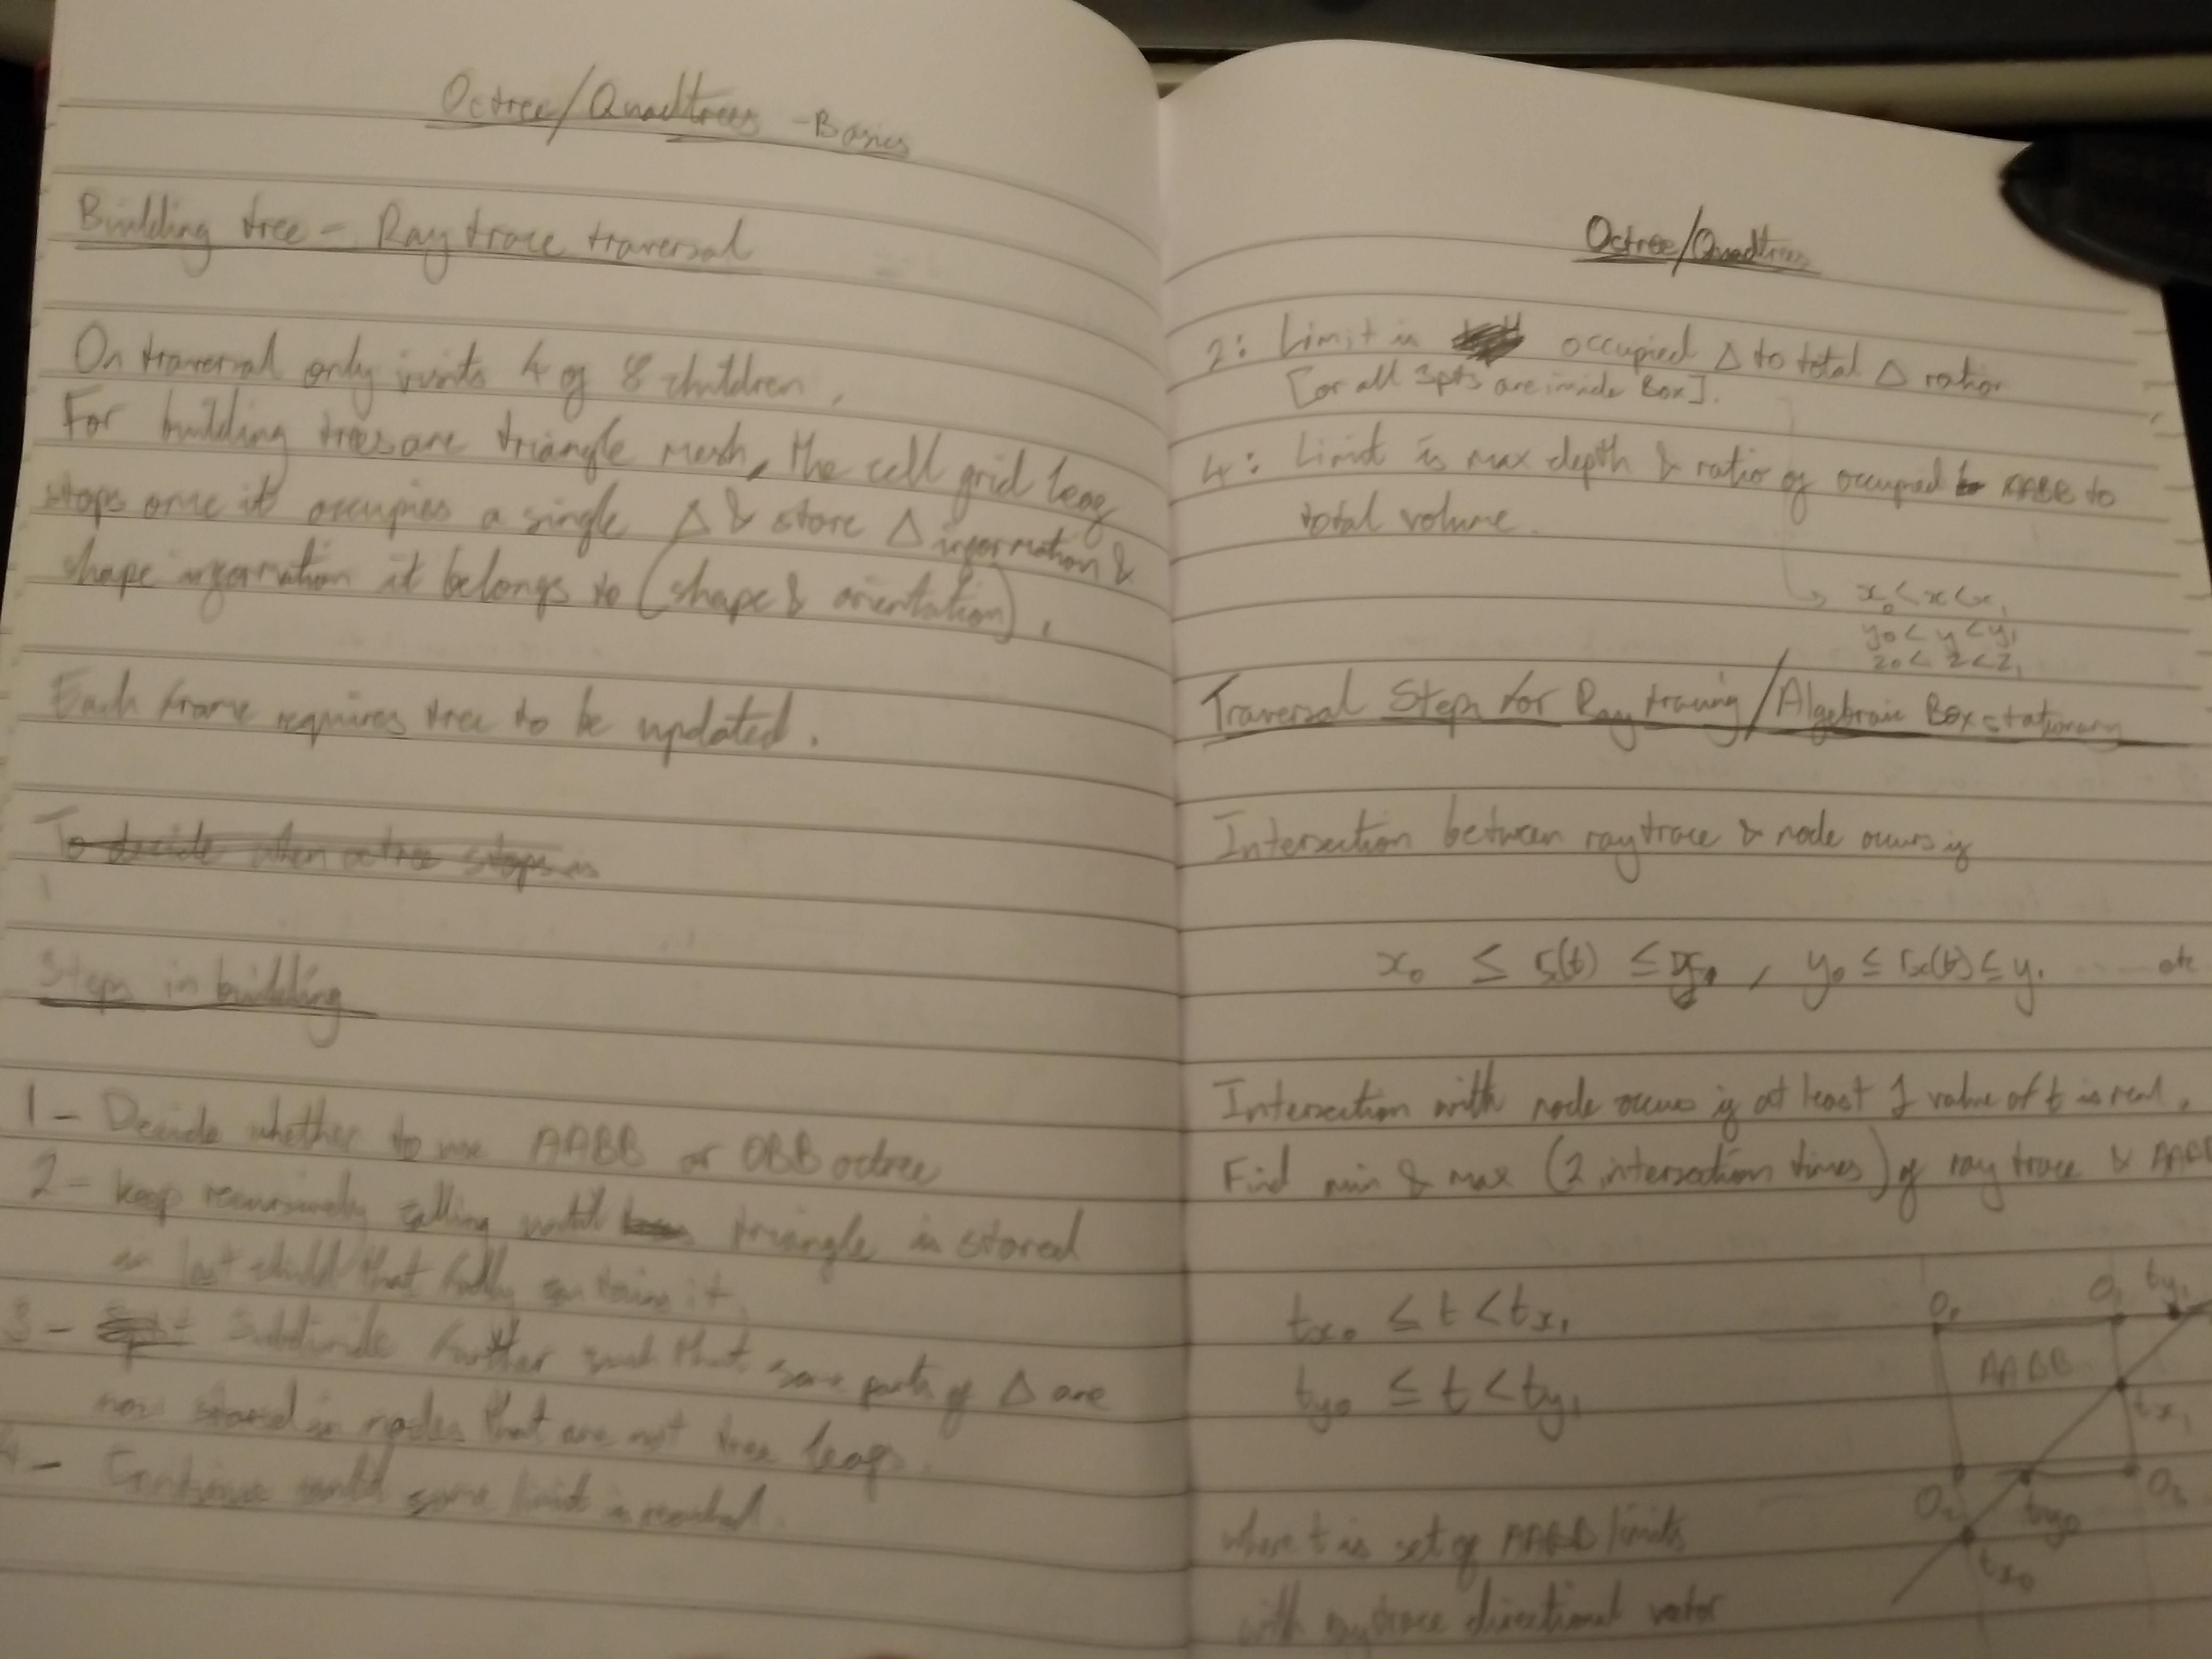 Octree/Quadtrees - Basics
Building tree - Ray trace traversal
On traversal only visits 4 of 8 children.
For building trees are triangle mesh, the cell grid leaf
stops once it occupies a single Δ & store Δ information &
shape information it belongs to (shape & orientation).
Each frame requires tree to be updated.
To decide when octree stops is
Steps in building
1 - Decide whether to use AABB or OBB octree
2 - keep recursively calling until triangle is stored
in last child that fully contains it.
3 - Subdivide further such that some parts of Δ are
now stored in nodes that are not tree leafs.
4 - Continue until some limit is reached.
Octree/Quadtrees
2: Limit is occupied Δ to total Δ ratio
[or all 3pts are inside Box].
4: Limit is max depth & ratio of occupied AABB to
total volume.
x₀ < x < x₁
y₀ < y < y₁
z₀ < z < z₁
Traversal Steps for Ray tracing / Algebraic Box stationary
Intersection between raytrace & node occurs if
x₀ ≤ (t) ≤ , y₀ ≤ (t) ≤ y₁ ..... etc
Intersection with node occurs if at least 1 value of t is real.
Find min & max (2 intersection times) of ray trace & AABB
tx₀ ≤ t < tx₁
ty₀ ≤ t < ty₁
O₁ ty₁
AABB
tx₁
O₂ ty₀ O₃
tx₀
where t is set of AABB limits
with raytrace directional vector